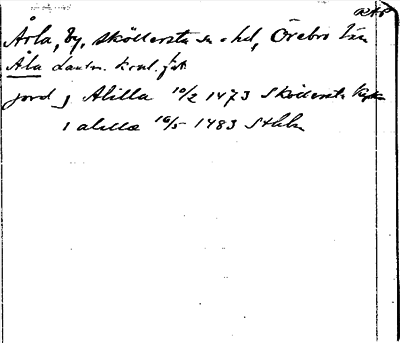 Årla, by, Sköllersta sn o hd, Örebro län
Åla Lantm. konl.
jord j Alilla 10/2 1473 Sköllersta
i alilla 16/5 1483 Sthlm